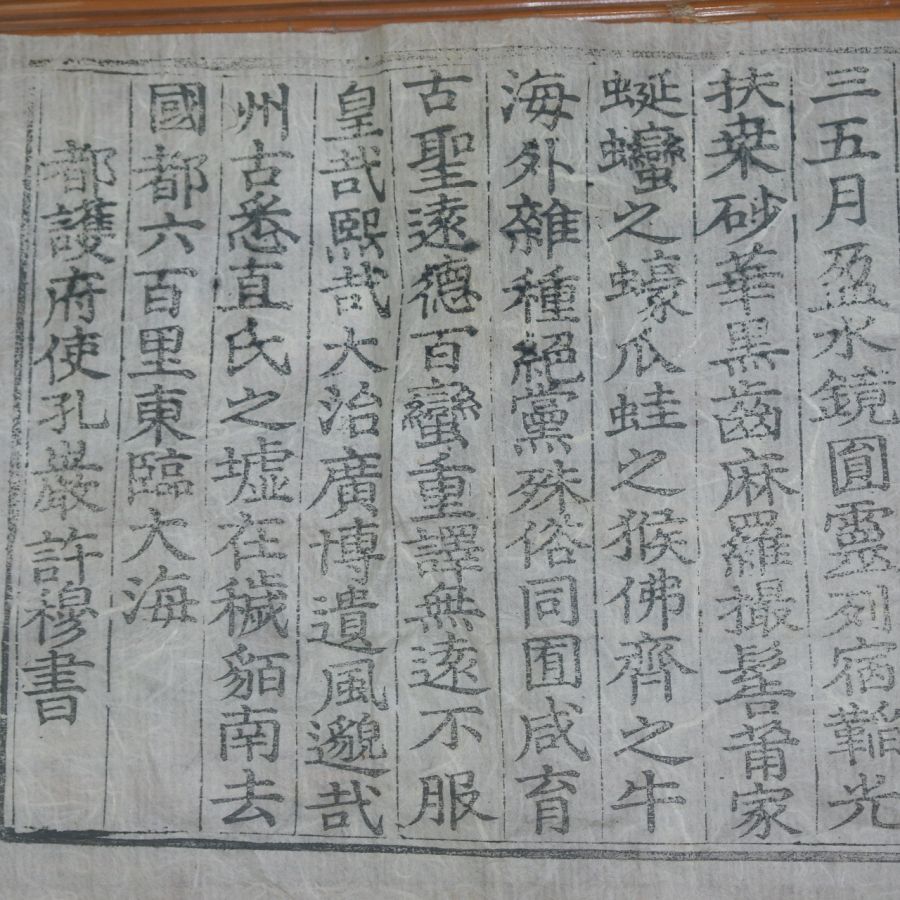 三五月盈水鏡圓靈列宿韜光
扶桒砂華黑齒麻羅撮髻莆家
蜒蠻之蠔爪蛙之猴佛齊之牛
海外雜種絕黨殊俗同囿咸育
古聖遠德百蠻重譯無遠不服
皇哉熙哉大治廣博遺風邈哉
州古悉直氏之墟在穢貊南去
國都六百里東臨大海
都護府使孔巖許穆書